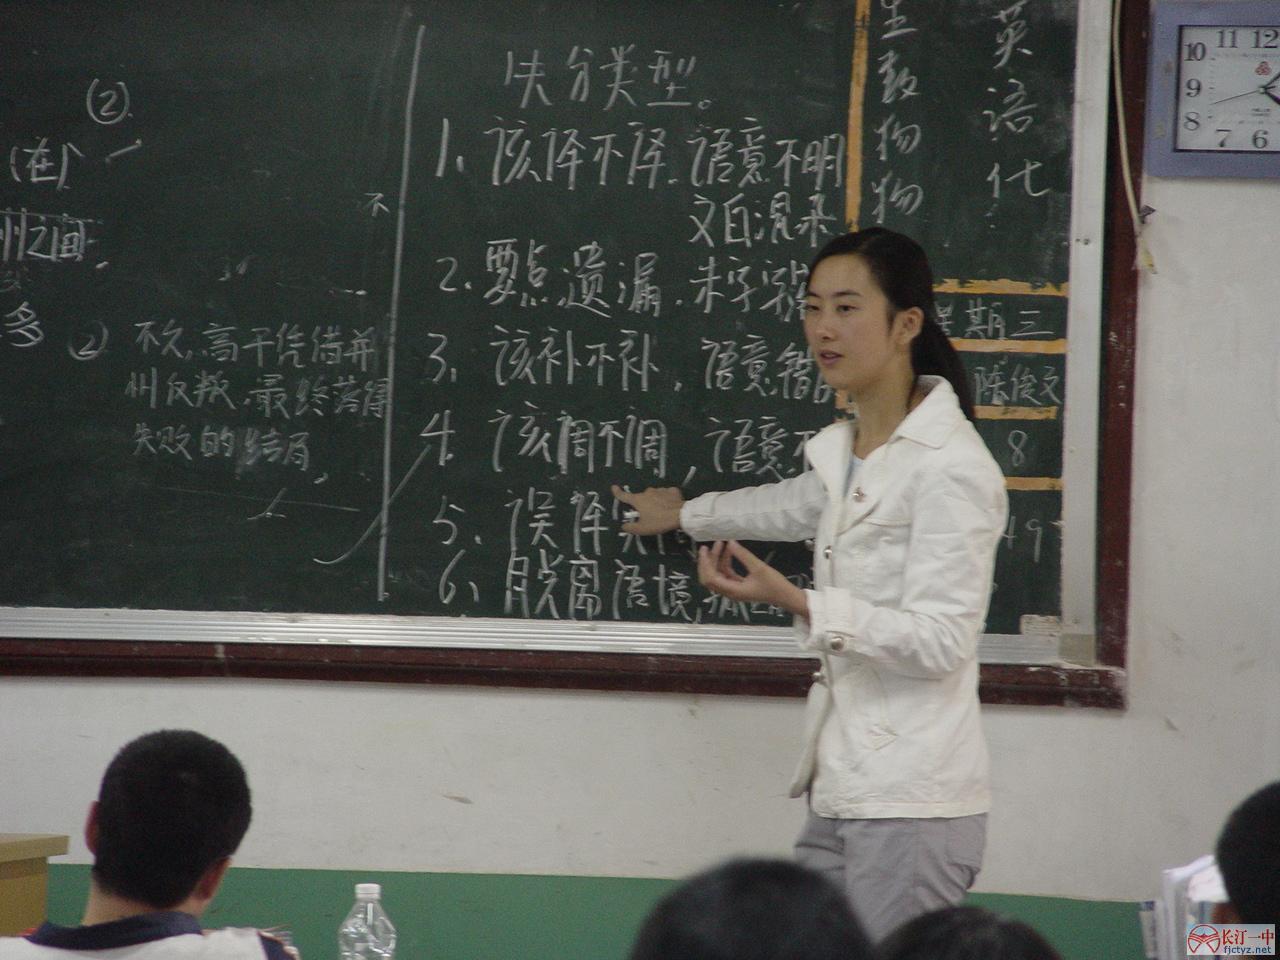 ②
(在)
州之间
多
不
② 不久,高干凭借并
州反叛,最终落得
失败的结局,
失分类型。
1、该译不译.语意不明
文白混杂
2.要点遗漏.未字字
3、该补不补,语意错
4.该调不调,语意不
5、误译实词
6、脱离语境,孤
生数物物
英语化
星期三
陈俊文
8
49
10 11 12
9
8 7 6
长汀一中
fjctyz.net